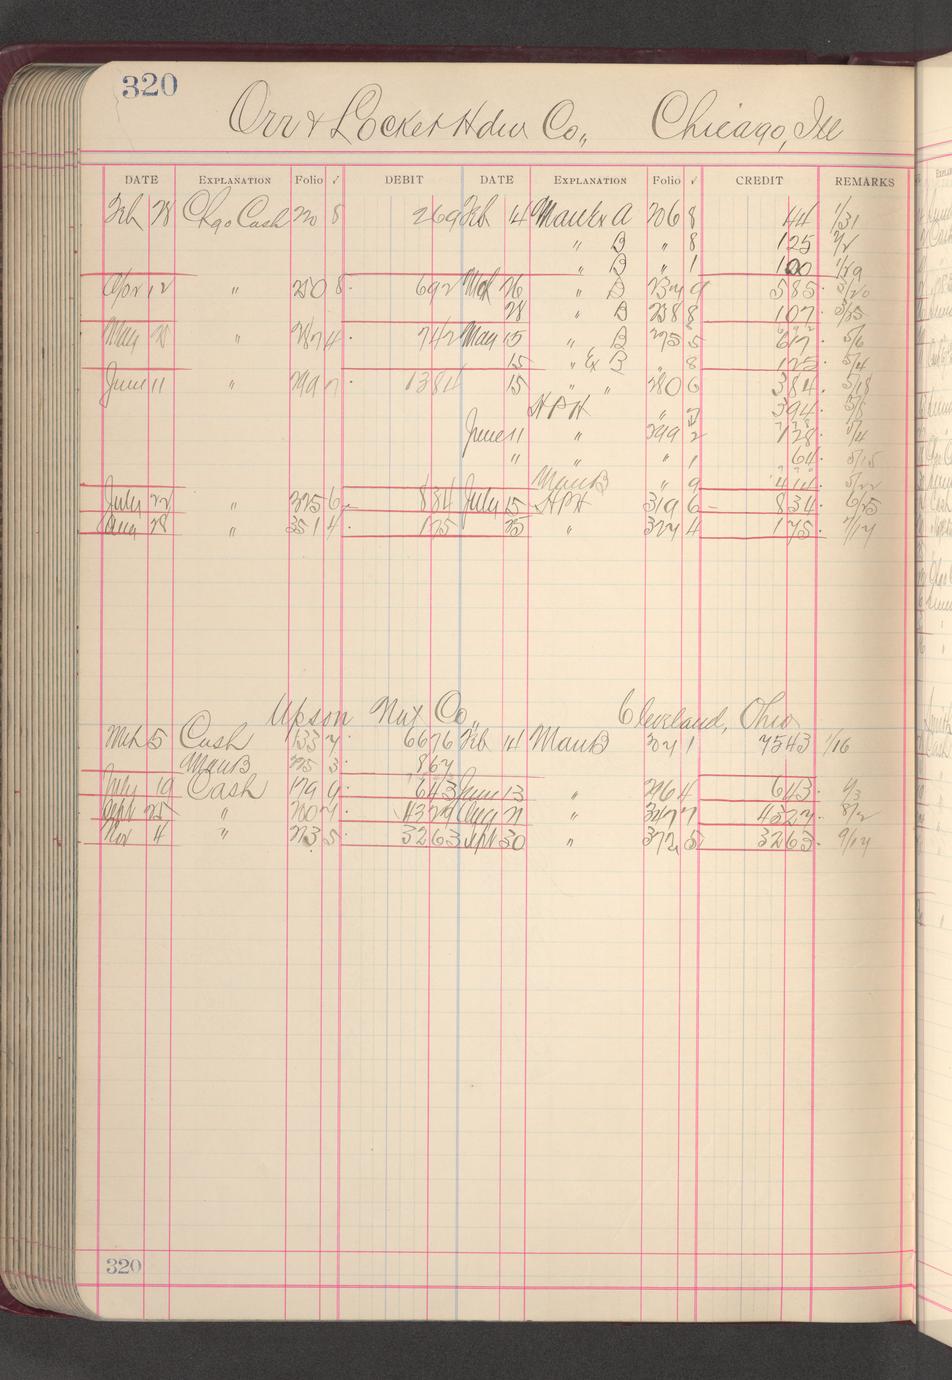 320
Orr & Locket Hdw Co., Chicago, Ill
DATE EXPLANATION Folio √ DEBIT DATE EXPLANATION Folio √ CREDIT REMARKS
Feb 28 Chgo Cash 20 8 269 Feb 14 A 206 8 44 1/31
" B " 8 125 2/2
" B " 1 100 1/29
Apr 12 " 250 8 692 Mch 26 " B 234 9 585 3/20
28 " B 238 8 107 3/25
May " 287 4 742 May 15 " B 275 5 617 5/6
15 " Ex B " 8 125 5/4
June 11 " 299 7 1384 15 " " 280 6 384 5/18
HPH " 394 5/8
June 11 " 299 2 128 5/4
" " " 1 64 5/15
Man B " 9 414 5/22
July 22 " 325 6 834 July 15 HPH 319 6 834 6/25
Aug 28 " 351 4 175 25 " 324 4 175 7/17
Upson Nut Co., Cleveland, Ohio
Mch 5 Cash 133 7 6676 Feb 14 Man B 1 7543 1/16
Man B 3 867
July 19 Cash 179 9 643 June 13 " 296 4 643 4/3
Sept 25 " 4327 Aug 21 " 347 7 4327 8/2
Nov 4 " 235 3263 Sept 30 " 372 5 3263 9/17
320